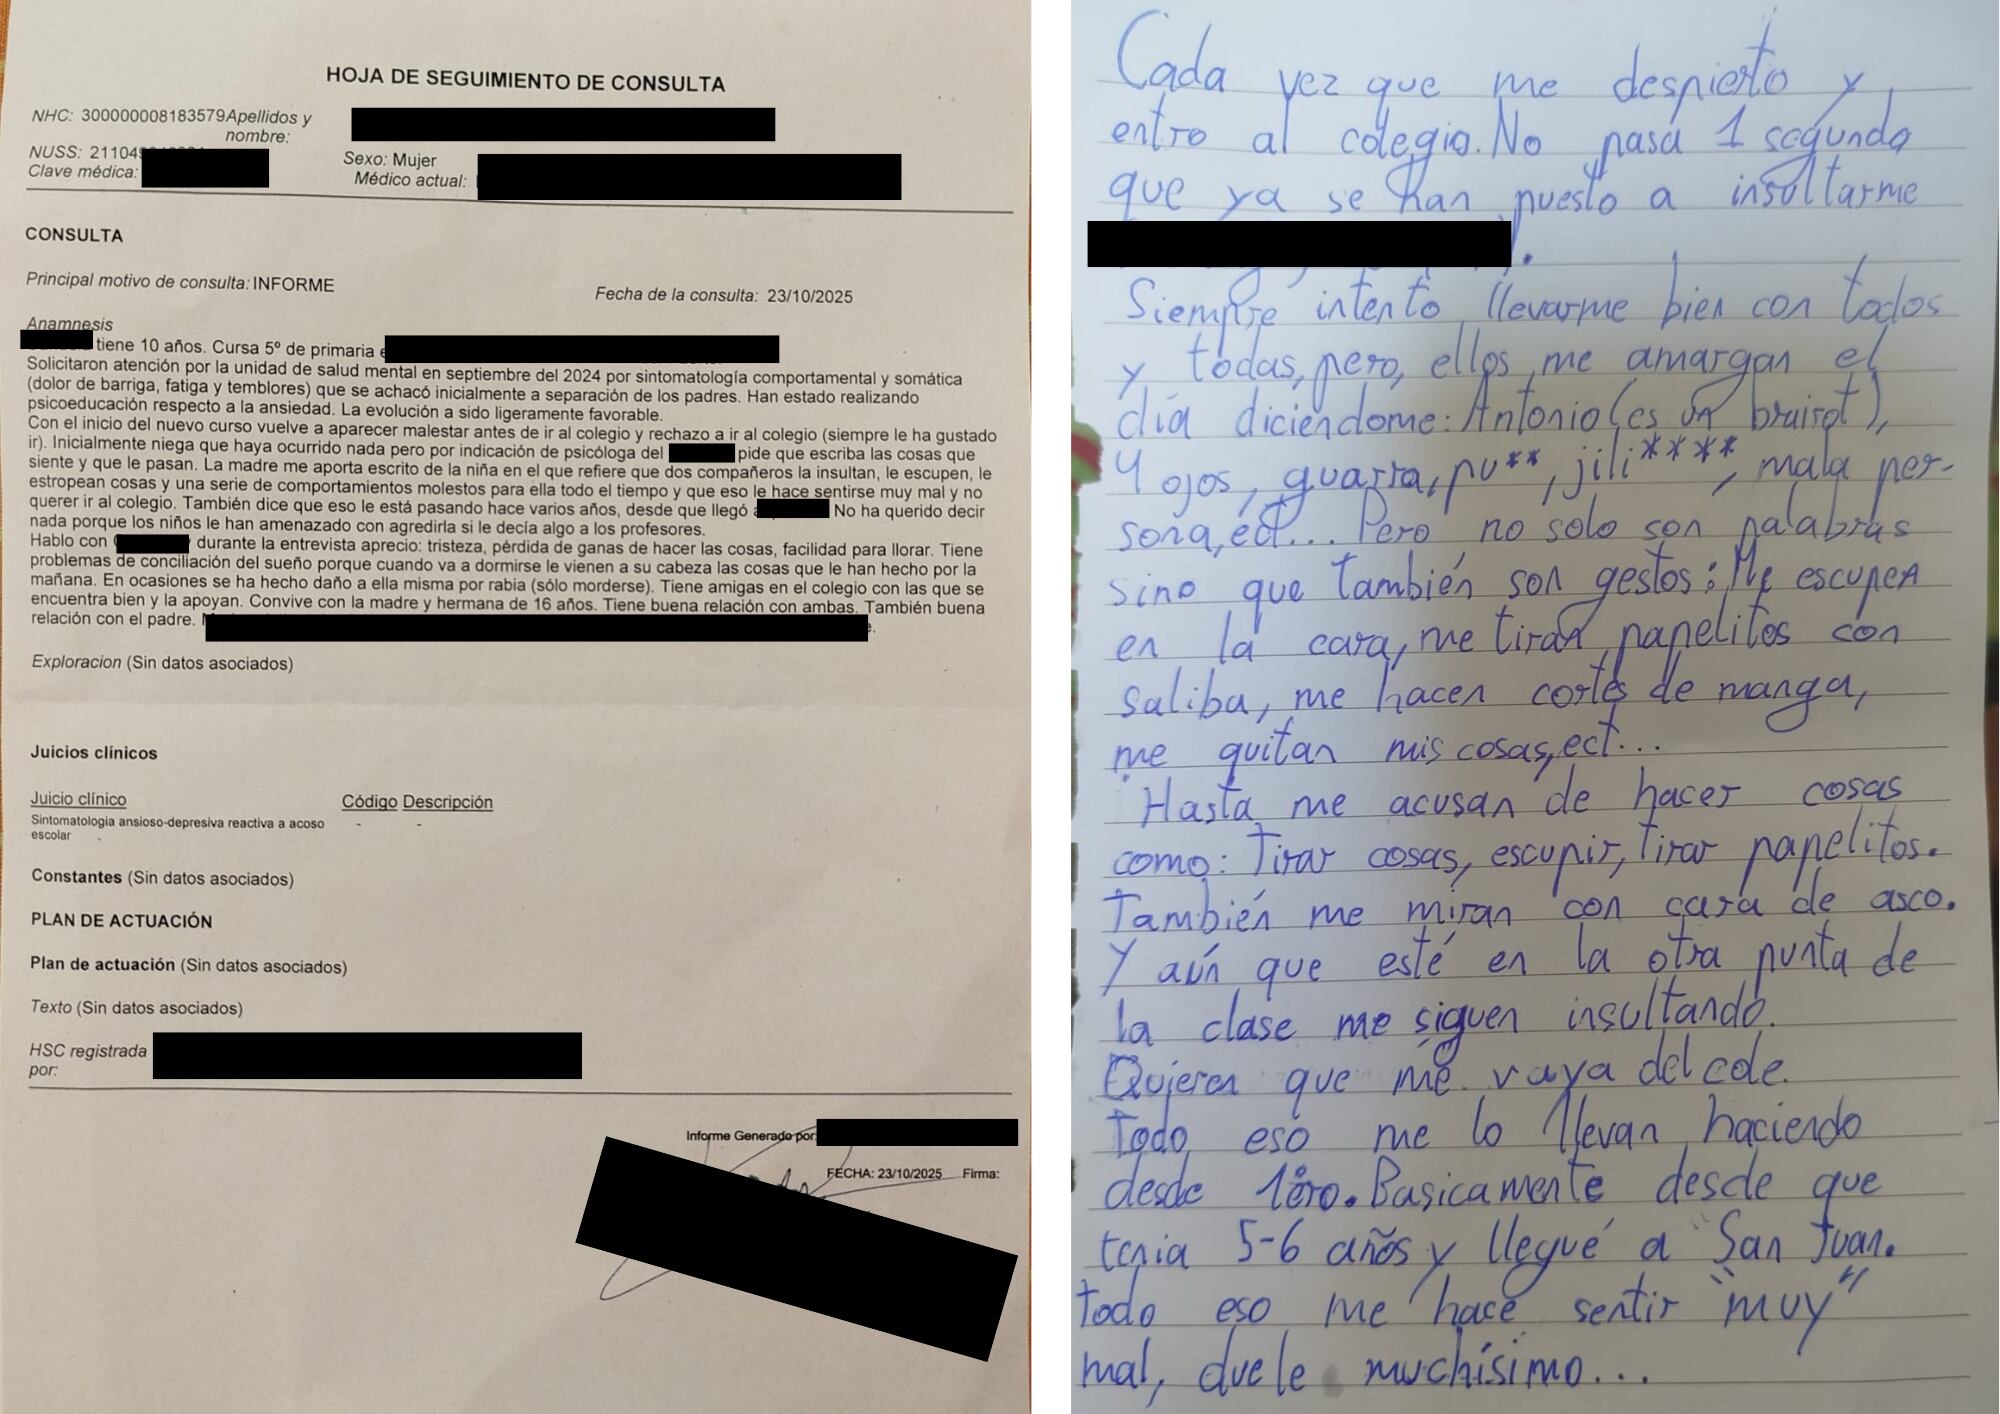 HOJA DE SEGUIMIENTO DE CONSULTA
NHC: 300000008183579Apellidos y
nombre:
NUSS: 21104
Clave médica:
Sexo: Mujer
Médico actual:
CONSULTA
Principal motivo de consulta: INFORME
Fecha de la consulta: 23/10/2025
Anamnesis
tiene 10 años. Cursa 5º de primaria e
Solicitaron atención por la unidad de salud mental en septiembre del 2024 por sintomatología comportamental y somática
(dolor de barriga, fatiga y temblores) que se achacó inicialmente a separación de los padres. Han estado realizando
psicoeducación respecto a la ansiedad. La evolución a sido ligeramente favorable.
Con el inicio del nuevo curso vuelve a aparecer malestar antes de ir al colegio y rechazo a ir al colegio (siempre le ha gustado
ir). Inicialmente niega que haya ocurrido nada pero por indicación de psicóloga del pide que escriba las cosas que
siente y que le pasan. La madre me aporta escrito de la niña en el que refiere que dos compañeros la insultan, le escupen, le
estropean cosas y una serie de comportamientos molestos para ella todo el tiempo y que eso le hace sentirse muy mal y no
querer ir al colegio. También dice que eso le está pasando hace varios años, desde que llegó No ha querido decir
nada porque los niños le han amenazado con agredirla si le decía algo a los profesores.
Hablo con durante la entrevista aprecio: tristeza, pérdida de ganas de hacer las cosas, facilidad para llorar. Tiene
problemas de conciliación del sueño porque cuando va a dormirse le vienen a su cabeza las cosas que le han hecho por la
mañana. En ocasiones se ha hecho daño a ella misma por rabia (sólo morderse). Tiene amigas en el colegio con las que se
encuentra bien y la apoyan. Convive con la madre y hermana de 16 años. Tiene buena relación con ambas. También buena
relación con el padre.
Exploracion (Sin datos asociados)
Juicios clínicos
Juicio clínico Código Descripción
Sintomatologia ansioso-depresiva reactiva a acoso - -
escolar
Constantes (Sin datos asociados)
PLAN DE ACTUACIÓN
Plan de actuación (Sin datos asociados)
Texto (Sin datos asociados)
HSC registrada
por:
Informe Generado por:
FECHA: 23/10/2025 Firma:
Cada vez que me despierto y
entro al colegio. No pasa 1 segundo
que ya se han puesto a insultarme
.
Siempre intento llevarme bien con todos
y todas, pero, ellos me amargan el
día diciendome: Antonio (es un brairot),
4 ojos, guarra, pu**, jili****, mala per-
sona, ect... Pero no solo son palabras
sino que también son gestos: Me escupen
en la cara, me tiran papelitos con
saliba, me hacen cortes de manga,
me quitan mis cosas, ect...
Hasta me acusan de hacer cosas
como: Tirar cosas, escupir, tirar papelitos.
También me miran con cara de asco.
Y aún que esté en la otra punta de
la clase me siguen insultando.
Quieren que me vaya del cole.
Todo eso me lo llevan haciendo
desde 1ero. Basicamente desde que
tenia 5-6 años y llegué a San Juan.
Todo eso me hace sentir "muy"
mal, duele muchísimo...